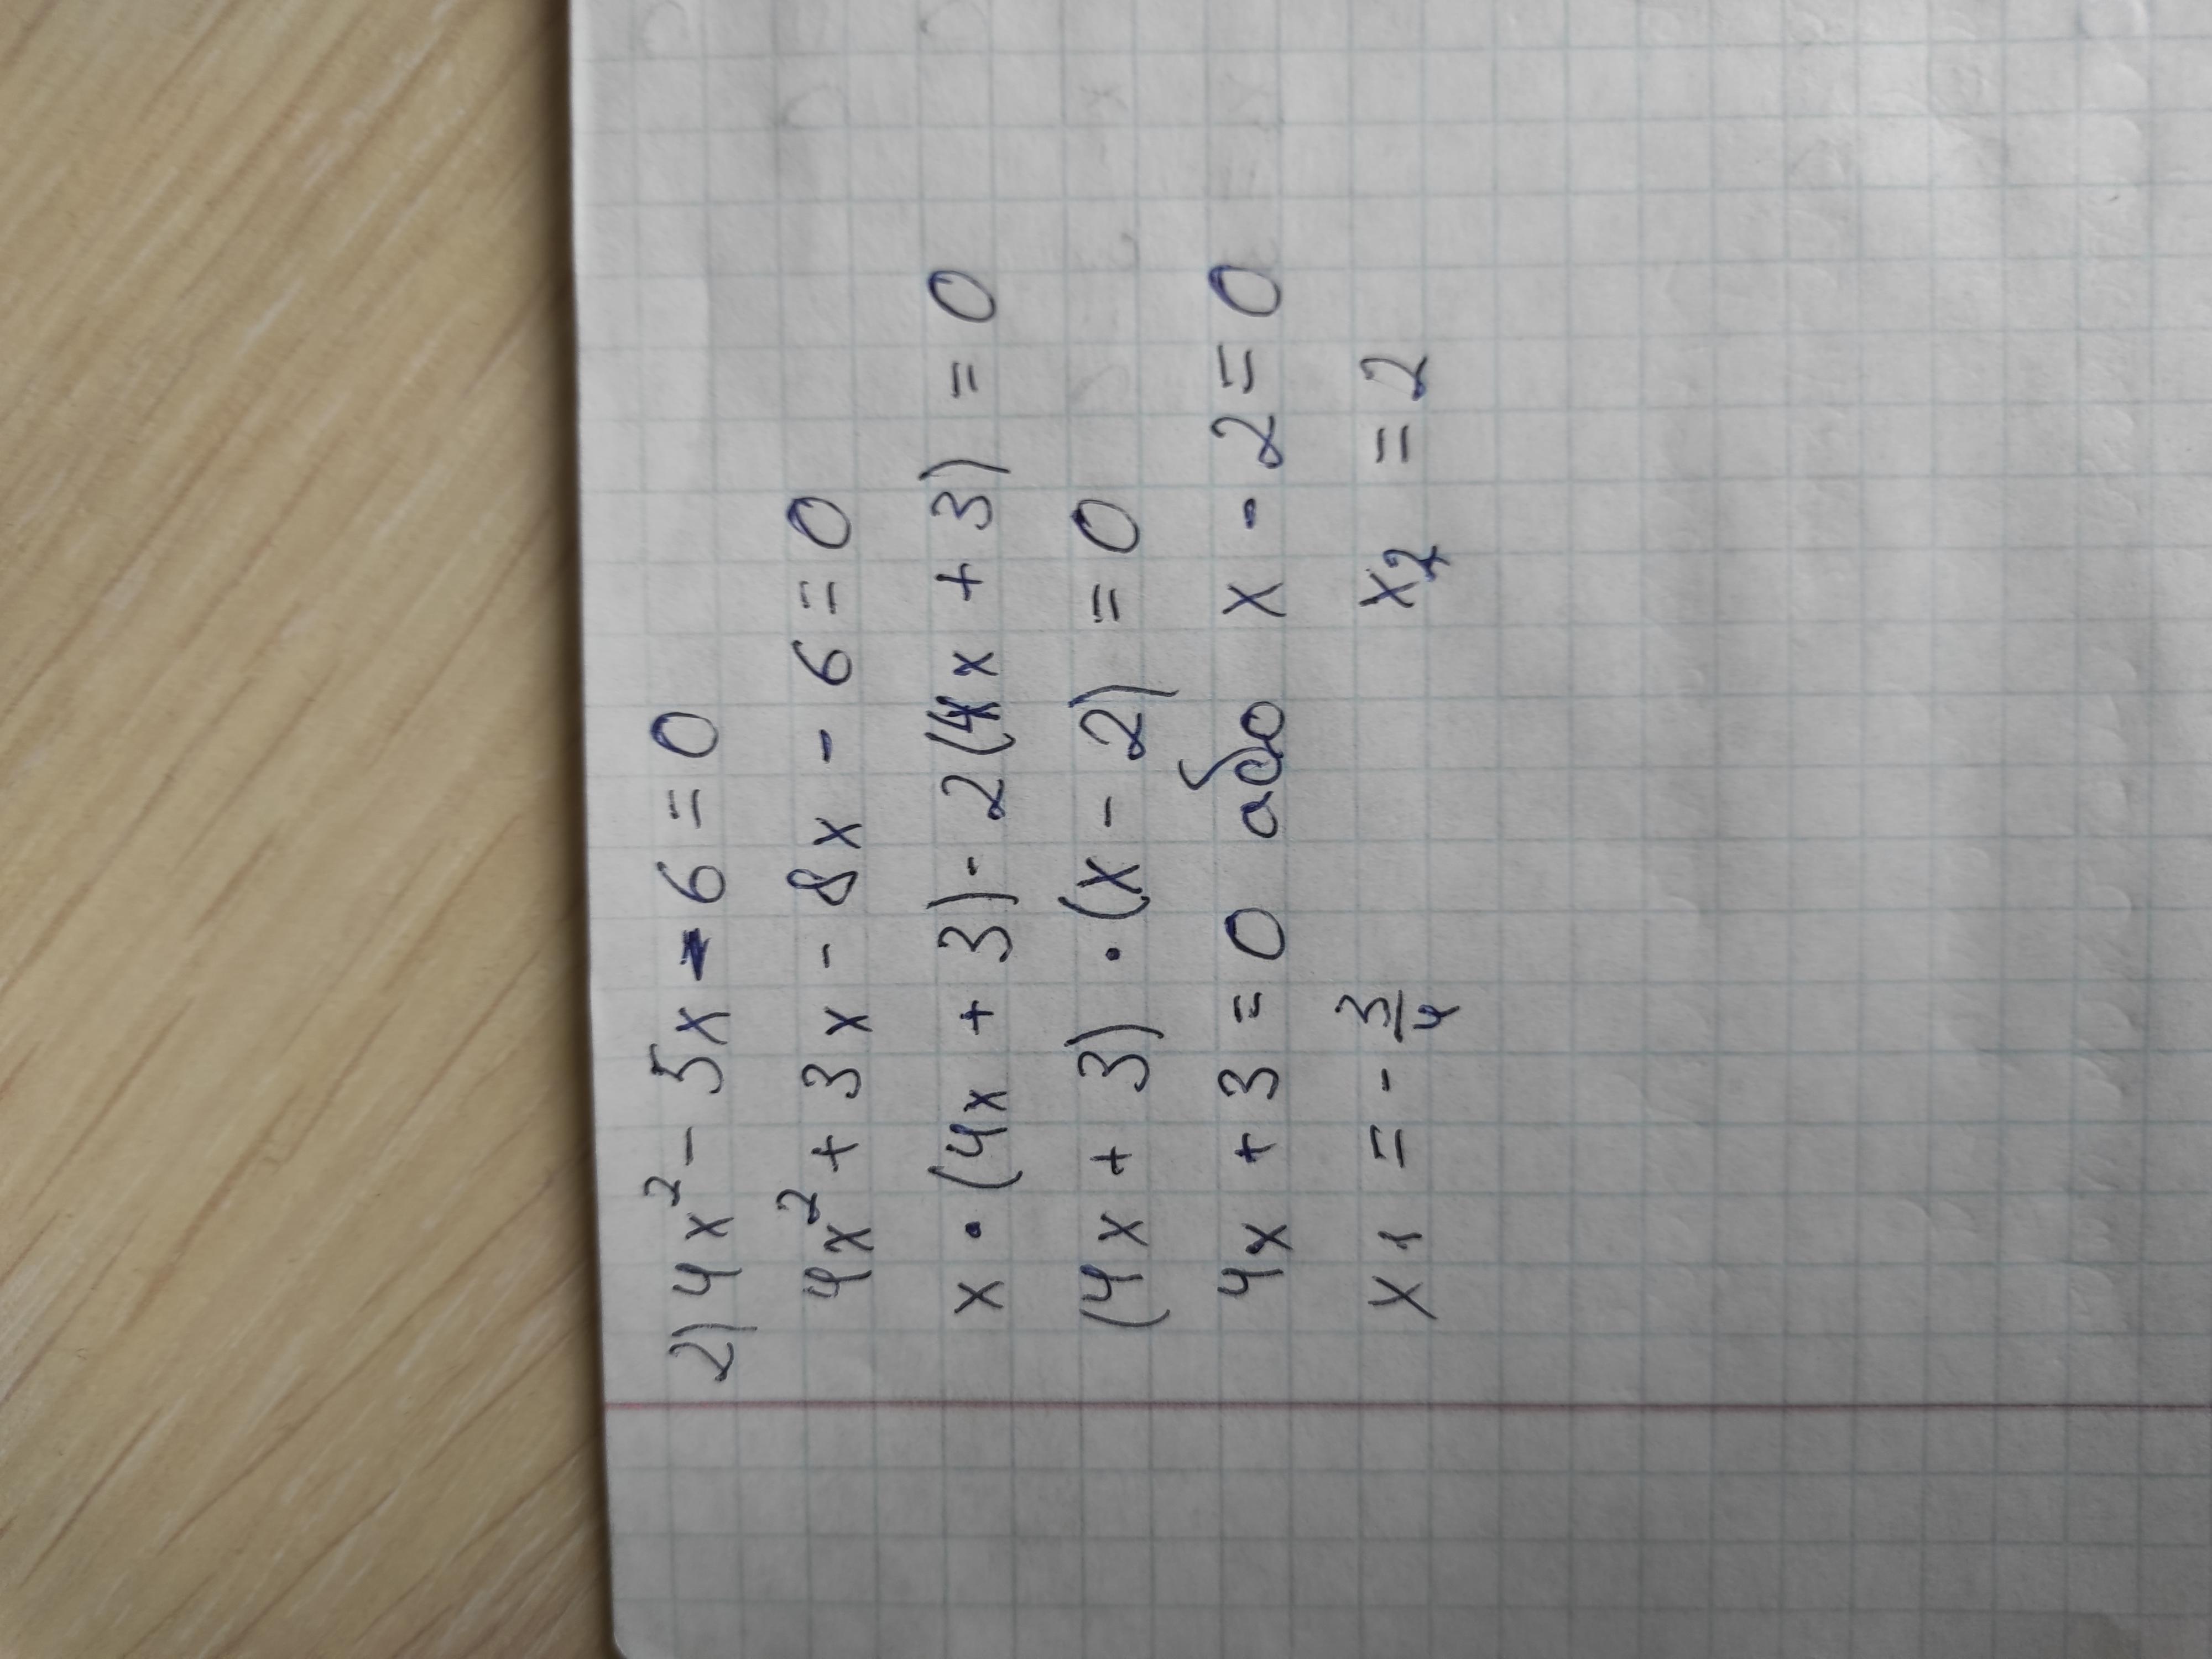 2) 4x² - 5x - 6 = 0
4x² + 3x - 8x - 6 = 0
x · (4x + 3) - 2(4x + 3) = 0
(4x + 3) · (x - 2) = 0
4x + 3 = 0 або x - 2 = 0
x₁ = - 3/4 x₂ = 2